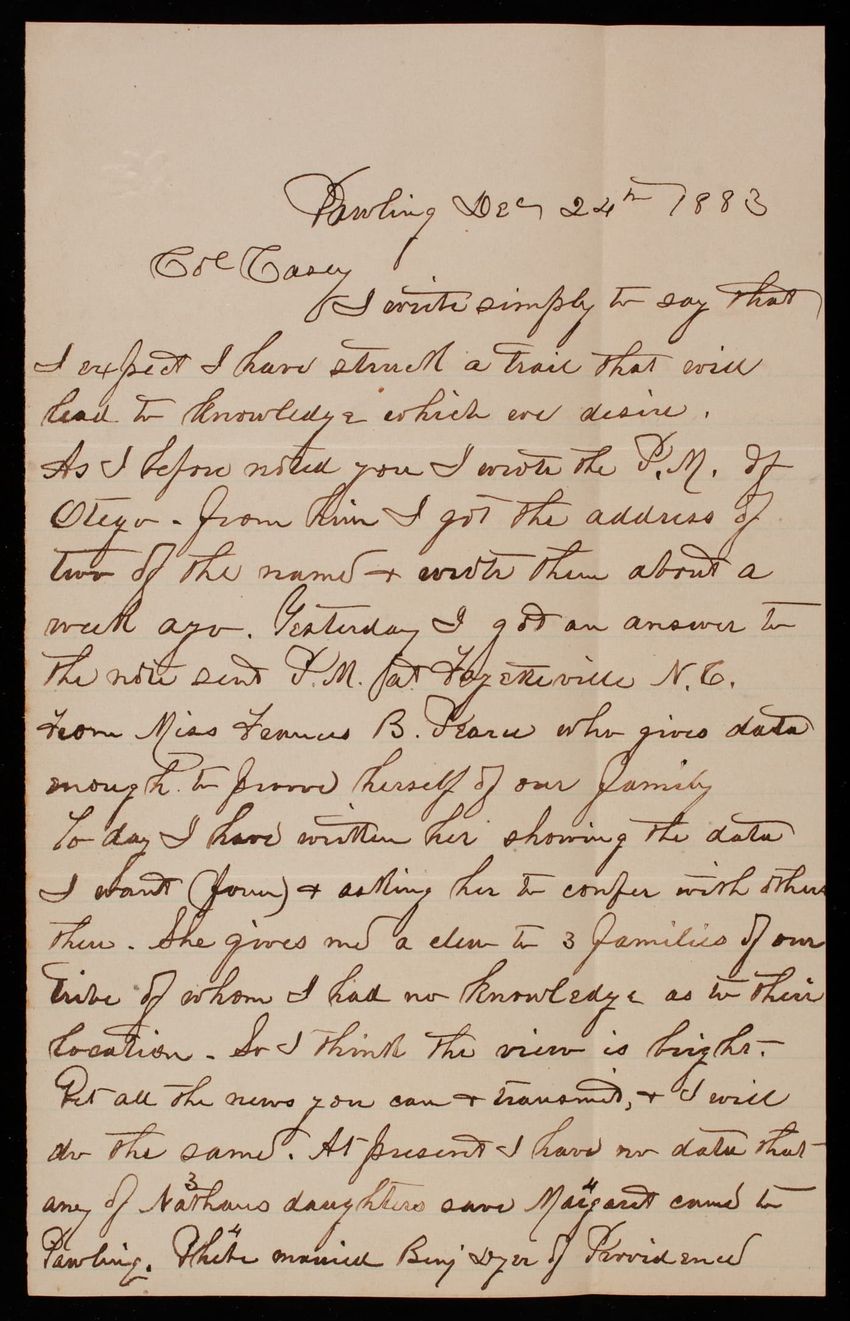 Pawling Dec 24th 1883
Col Casey
I write simply to say that
I expect I have struck a trail that will
lead to knowledge which we desire.
As I before noted you I wrote the P.M. of
Otego - from him I got the address of
two of the name & wrote them about a
week ago. Yesterday I got an answer to
the note sent P.M. at Fayetteville N.C.
from Miss Frances B. Pearce who gives data
enough to prove herself of our family
To day I have written her showing the data
I want (form) & asking her to confer with others
there. She gives me a clew to 3 families of our
tribe of whom I had no knowledge as to their
location - So I think the view is bright.
Get all the news you can & transmit, & I will
do the same. At present I have no data that
any of Nathans3 daughters save Margaret4 came to
Pawling. Phebe4 married Benj Dyer of Providence